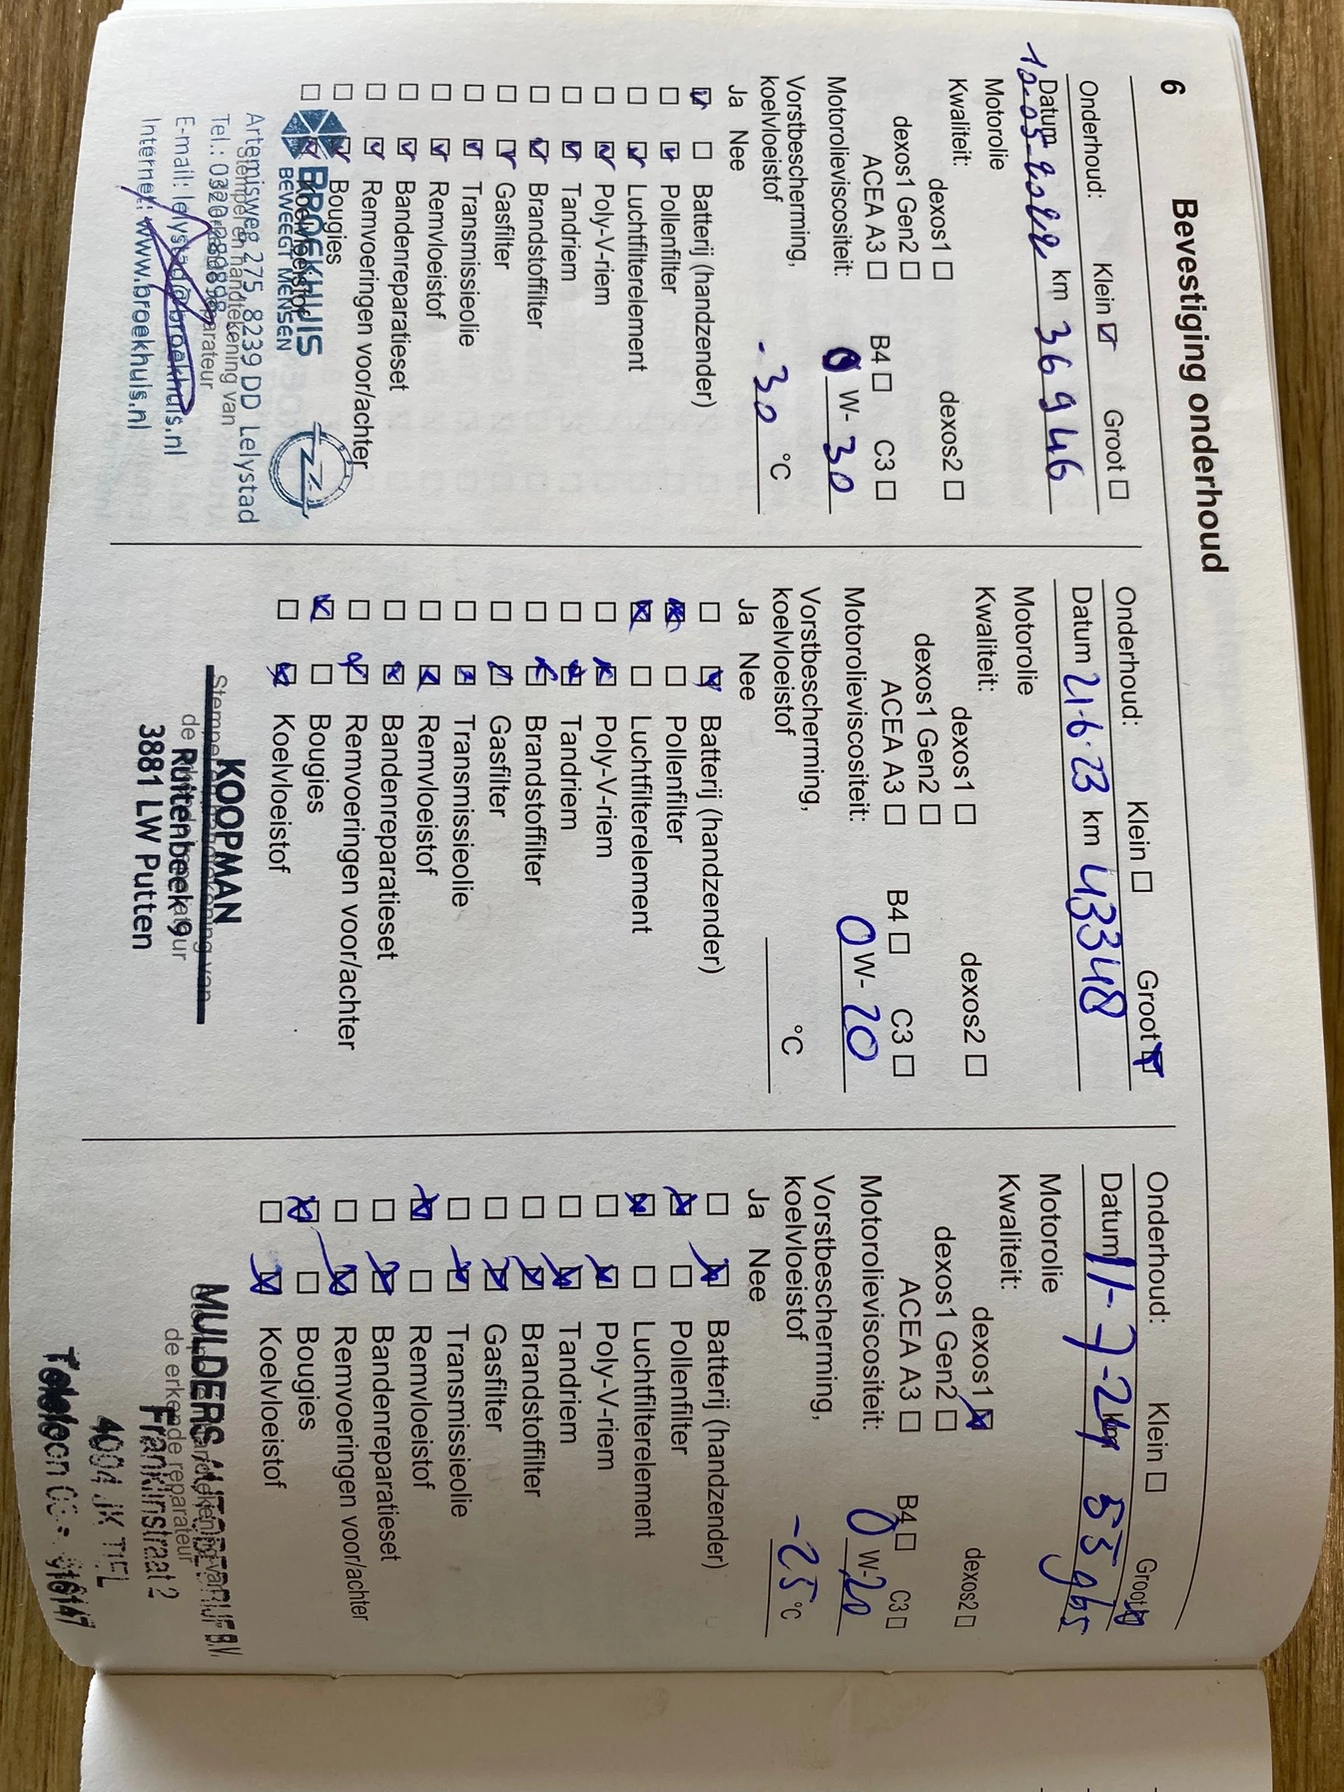 6 Bevestiging onderhoud
Onderhoud: Klein ☑ Groot ☐
Datum 12-05-2022 km 36946
Motorolie
Kwaliteit: dexos1 ☐ dexos2 ☐
dexos1 Gen2 ☐
ACEA A3 ☐ B4 ☐ C3 ☐
Motorolieviscositeit: 0 W- 30
Vorstbescherming,
koelvloeistof -30 °C
Ja Nee
☑ ☐ Batterij (handzender)
☐ ☑ Pollenfilter
☐ ☑ Luchtfilterelement
☐ ☑ Poly-V-riem
☐ ☑ Tandriem
☐ ☑ Brandstoffilter
☐ ☑ Gasfilter
☐ ☑ Transmissieolie
☐ ☑ Remvloeistof
☐ ☑ Bandenreparatieset
☐ ☑ Remvoeringen voor/achter
☐ ☑ Bougies
☐ ☑ Koelvloeistof
BROEKHUIS
BEWEEGT MENSEN
Artemisweg 275, 8239 DD Lelystad
Stempel en handtekening van
Tel.: 0320
E-mail: lelystad@broekhuis.nl
Internet: www.broekhuis.nl
Onderhoud: Klein ☐ Groot ☑
Datum 21-6-23 km 43348
Motorolie
Kwaliteit: dexos1 ☐ dexos2 ☐
dexos1 Gen2 ☐
ACEA A3 ☐ B4 ☐ C3 ☐
Motorolieviscositeit: 0 W- 20
Vorstbescherming,
koelvloeistof °C
Ja Nee
☐ ☑ Batterij (handzender)
☒ ☐ Pollenfilter
☒ ☐ Luchtfilterelement
☐ ☒ Poly-V-riem
☐ ☒ Tandriem
☐ ☒ Brandstoffilter
☐ ☒ Gasfilter
☐ ☒ Transmissieolie
☐ ☒ Remvloeistof
☐ ☒ Bandenreparatieset
☐ ☒ Remvoeringen voor/achter
☒ ☐ Bougies
☐ ☒ Koelvloeistof
KOOPMAN
Stempel en handtekening van
de
Ruitenbeek 9
3881 LW Putten
Onderhoud: Klein ☐ Groot ☒
Datum 11-7-24
Motorolie
Kwaliteit: dexos1 ☒ dexos2 ☐
dexos1 Gen2 ☐
ACEA A3 ☐ B4 ☐ C3 ☐
Motorolieviscositeit: 0 W- 20
Vorstbescherming,
koelvloeistof -25 °C
Ja Nee
☐ ☒ Batterij (handzender)
☒ ☐ Pollenfilter
☒ ☐ Luchtfilterelement
☐ ☒ Poly-V-riem
☐ ☒ Tandriem
☐ ☒ Brandstoffilter
☐ ☒ Gasfilter
☐ ☒ Transmissieolie
☒ ☐ Remvloeistof
☐ ☒ Bandenreparatieset
☐ ☒ Remvoeringen voor/achter
☒ ☐ Bougies
☐ ☒ Koelvloeistof
MULDERS AUTOBEDRIJF B.V.
de erkende reparateur
Franklinstraat 2
4004 JK TIEL
Telefoon